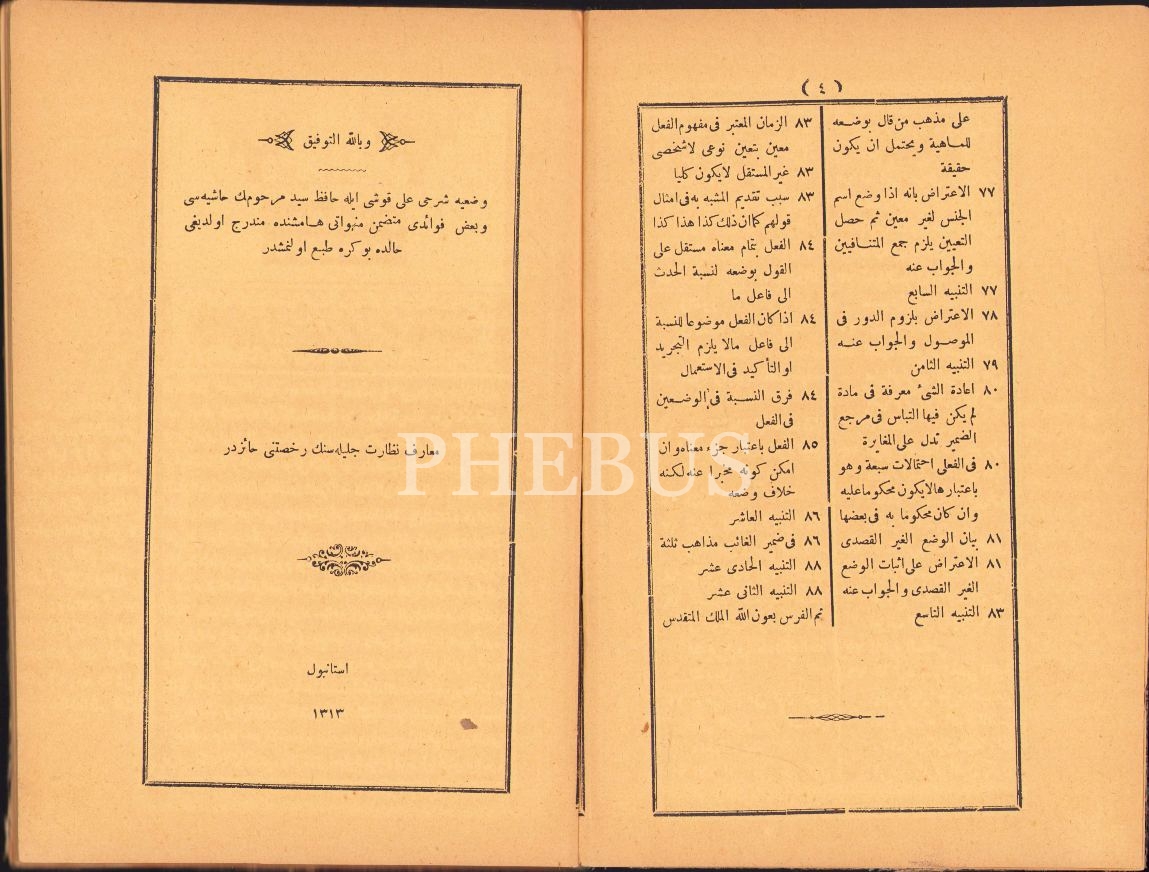 ( ٤ )
على مذهب من قال بوضعه
للماهية ويحتمل ان يكون
حقيقة
٧٧ الاعتراض بانه اذا وضع اسم
الجنس لغير معين ثم حصل
التعيين يلزم جمع المتنافيين
والجواب عنه
٧٧ التنبيه السابع
٧٨ الاعتراض بلزوم الدور فى
الموصول والجواب عنه
٧٩ التنبيه الثامن
٨٠ اعادة الشئ معرفة فى مادة
لم يكن فيها التباس فى مرجع
الضمير تدل على المغايرة
٨٠ فى الفعلى احتمالات سبعة وهو
باعتبارها لايكون محكوما عليه
وان كان محكوما به فى بعضها
٨١ بيان الوضع الغير القصدى
٨١ الاعتراض على اثبات الوضع
الغير القصدى والجواب عنه
٨٣ التنبيه التاسع
٨٣ الزمان المعتبر فى مفهوم الفعل
معين بتعين نوعى لاشخصى
٨٣ غير المستقل لايكون كليا
٨٣ سبب تقديم المشبه به فى امثال
قولهم كما ان ذلك كذا هذا كذا
٨٤ الفعل بتمام معناه مستقل على
القول بوضعه لنسبة الحدث
الى فاعل ما
٨٤ اذا كان الفعل موضوعا للنسبة
الى فاعل مالا يلزم التجريد
او التأكيد فى الاستعمال
٨٤ فرق النسبة فى الوضعين
فى الفعل
٨٥ الفعل باعتبار جزء معناه وان
امكن كونه مخبرا عنه لكنه
خلاف وضعه
٨٦ التنبيه العاشر
٨٦ فى ضمير الغائب مذاهب ثلثة
٨٨ التنبيه الحادى عشر
٨٨ التنبيه الثانى عشر
تم الفرس بعون الله الملك المتقدس
وبالله التوفيق
وضعيه شرحى على قوشى ايله حافظ سيد مرحومك حاشيه سى
وبعض فوائدى متضمن منهواتى هامشنده مندرج اولديغى
حالده بو كره طبع اولنمشدر
معارف نظارت جليله سنك رخصتنى حائزدر
استانبول
١٣١٣
PHEBUS